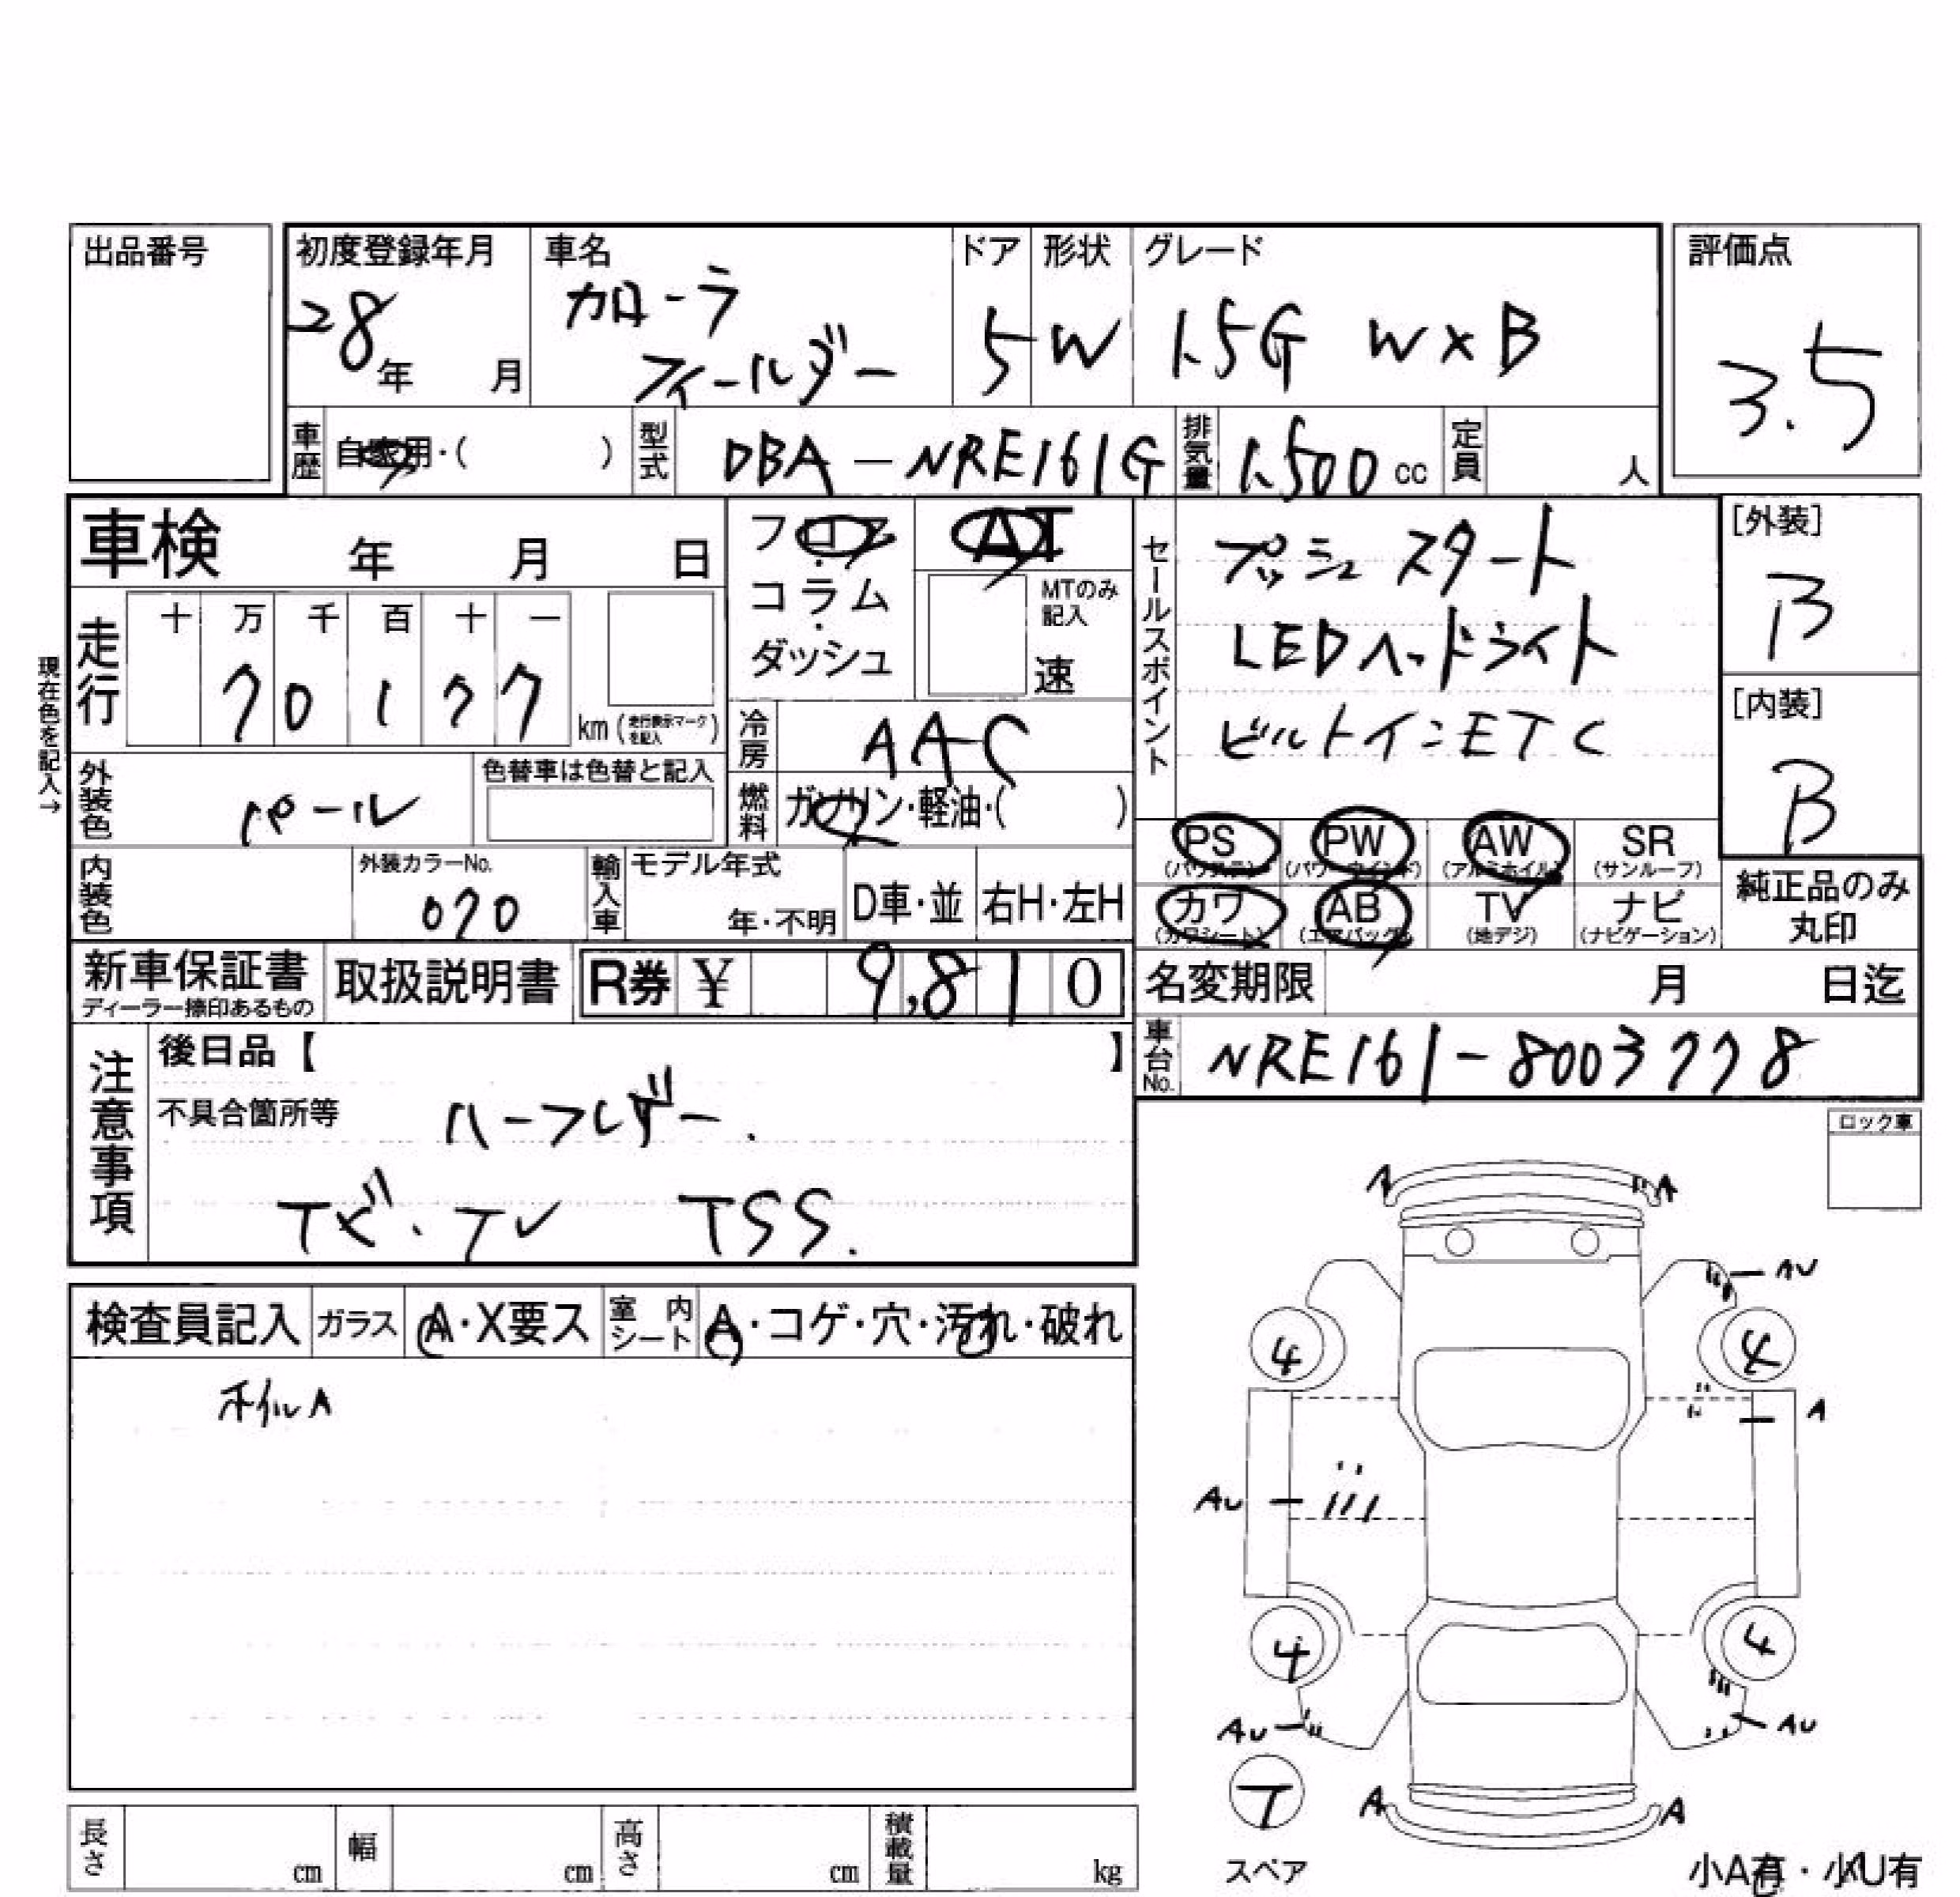 出品番号
初度登録年月
28年 月
車名
カローラ
フィールダー
ドア
5
形状
W
グレード
1.5G W×B
評価点
3.5
車歴
自家用・( )
型式
DBA-NRE161G
排気量
1,500 cc
定員
人
車検 年 月 日
走行
十 万 千 百 十 一
7 0 1 7 7
km (走行表示マークを記入)
現在色を記入→
フロア
・
コラム
・
ダッシュ
AT
MTのみ記入
速
冷房
AAC
燃料
ガソリン・軽油・( )
セールスポイント
プッシュスタート
LEDヘッドライト
ビルトインETC
[外装]
B
[内装]
B
外装色
パール
色替車は色替と記入
内装色
外装カラーNo.
070
輸入車
モデル年式
年・不明
D車・並
右H・左H
PS
(パワステ)
PW
(パワーウインド)
AW
(アルミホイル)
SR
(サンルーフ)
カワ
(カワシート)
AB
(エアバッグ)
TV
(地デジ)
ナビ
(ナビゲーション)
純正品のみ
丸印
新車保証書
ディーラー捺印あるもの
取扱説明書
R券 ¥ 9,810
名変期限 月 日迄
車台No.
NRE161-8003778
注意事項
後日品【 】
不具合箇所等
ハーフレザー.
ナビ・TV TSS.
ロック車
検査員記入
ガラス
A・X要ス
室内シート
A・コゲ・穴・汚れ・破れ
ホイルA
A A
AU
4 4
A
AU
4 4
AU AU
T
スペア
A A
長さ cm
幅 cm
高さ cm
積載量 kg
小A有・小U有